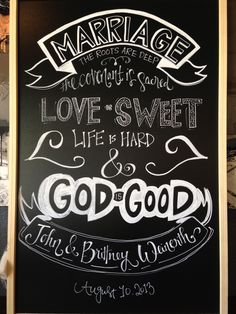 MARRIAGE
THE ROOTS ARE DEEP
the covenant is sacred
LOVE is SWEET
LIFE is HARD
&
GOD is GOOD
John & Brittney
August 10 2013